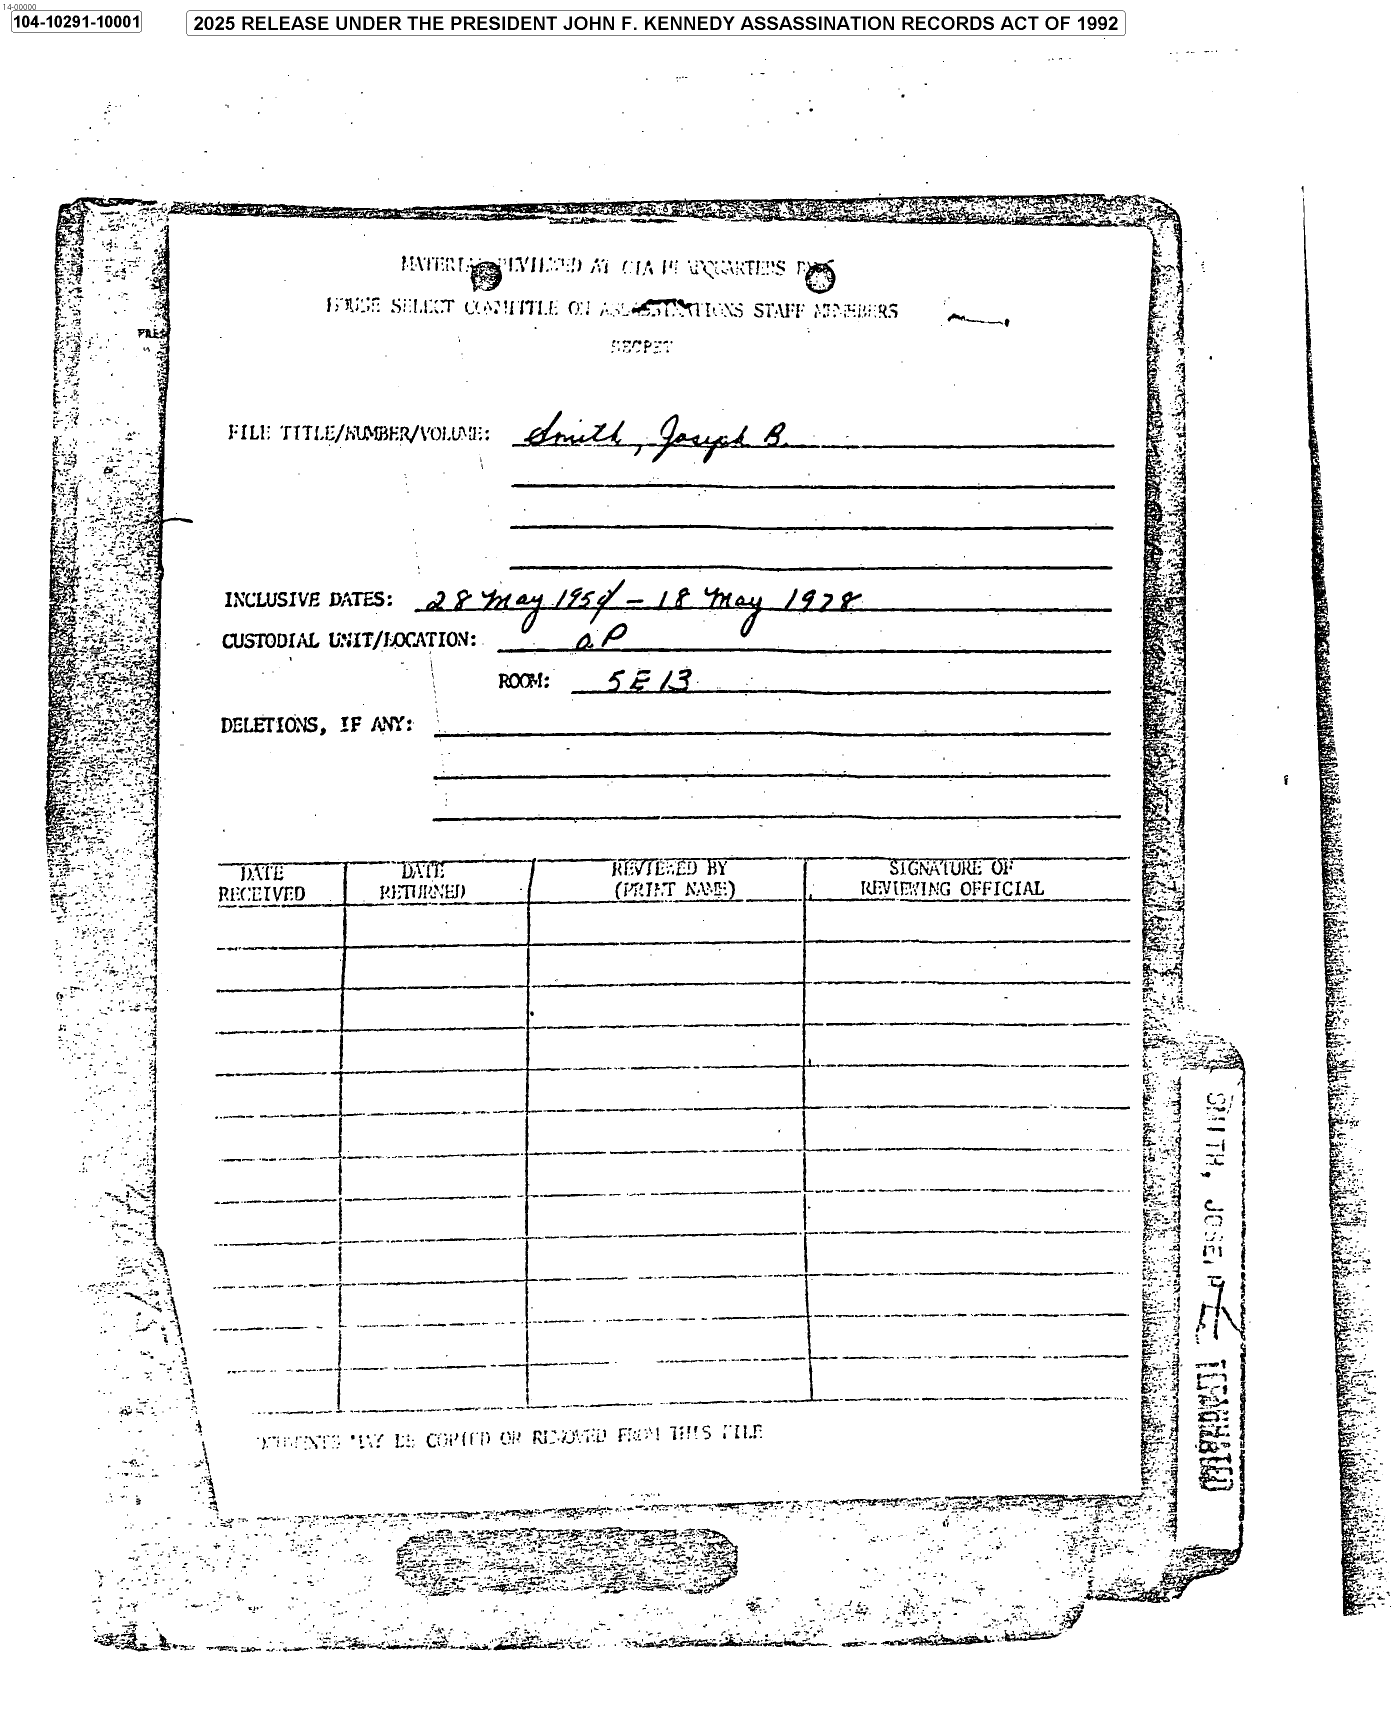 14-00000
104-10291-10001
2025 RELEASE UNDER THE PRESIDENT JOHN F. KENNEDY ASSASSINATION RECORDS ACT OF 1992
MATERIAL REVIEWED AT CIA HEADQUARTERS BY
HOUSE SELECT COMMITTEE ON ASSASSINATIONS STAFF MEMBERS
SECRET
FILE TITLE/NUMBER/VOLUME: Smith, Joseph B.
INCLUSIVE DATES: 28 May 1954 – 18 May 1978
CUSTODIAL UNIT/LOCATION: OP
ROOM: 5E13
DELETIONS, IF ANY:
DATE RECEIVED
DATE RETURNED
REVIEWED BY (PRINT NAME)
SIGNATURE OF REVIEWING OFFICIAL
DOCUMENTS MAY BE COPIED OR REMOVED FROM THIS FILE
SMITH, JOSEP